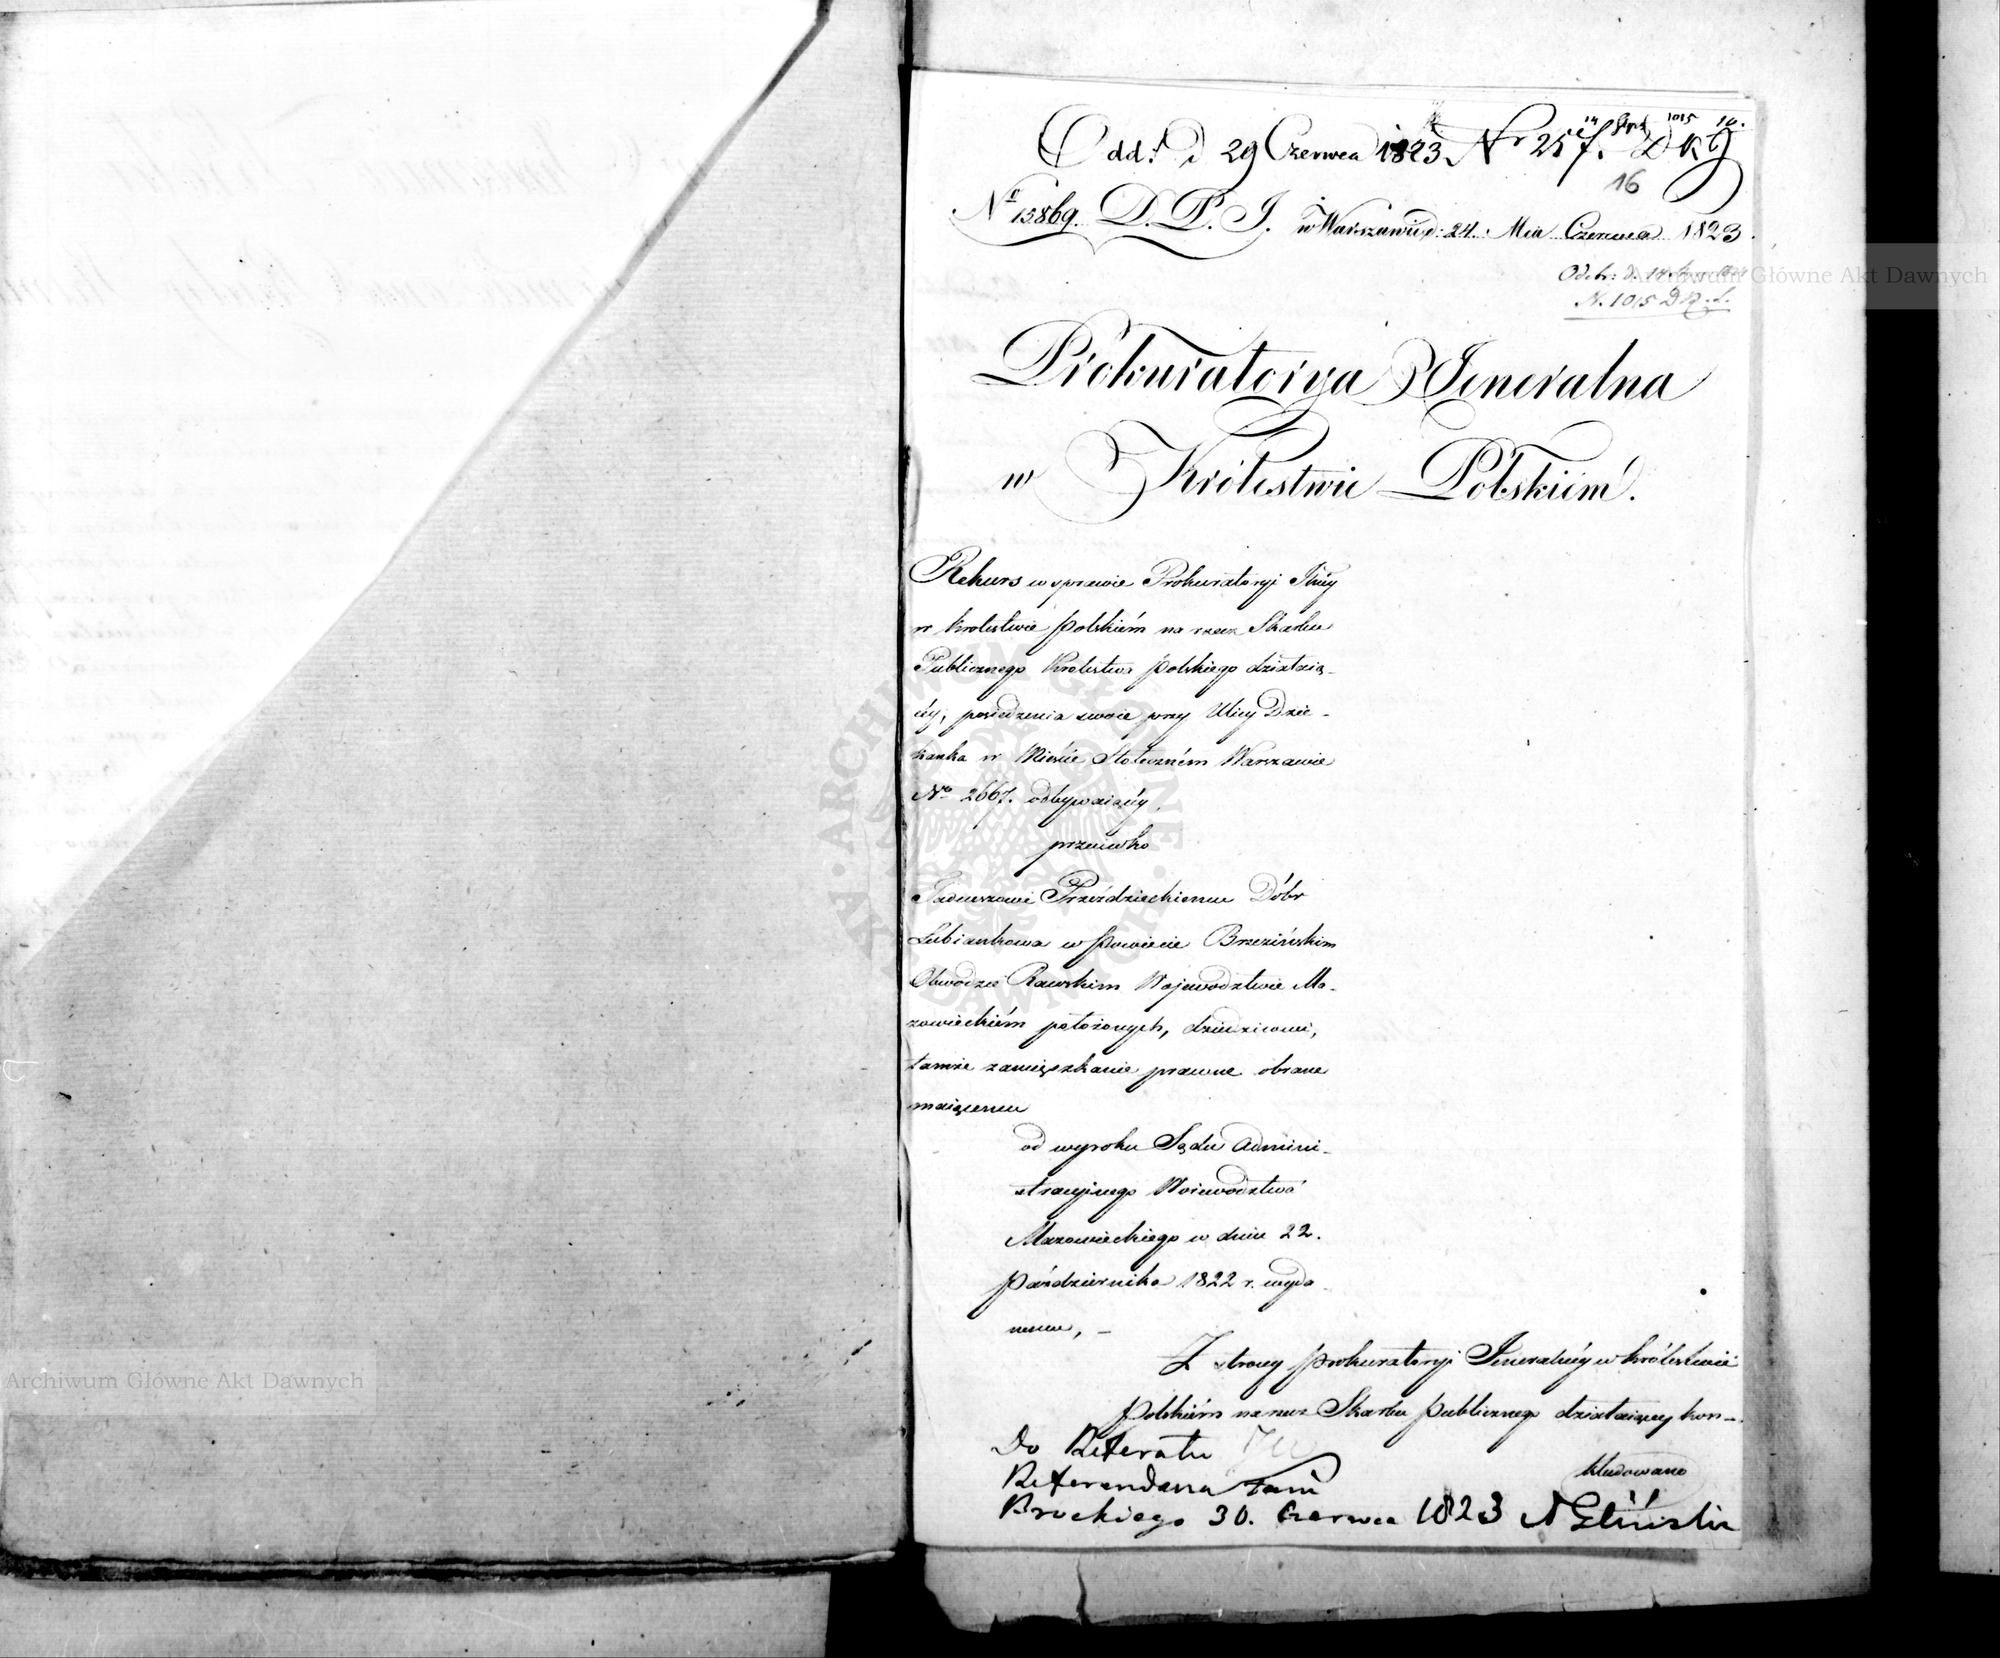 Odd: d 29 Czerwca 1823 Nr 257. DKJ
16
Nr 15869. D. P. J. w Warszawie d: 24. Mca Czerwca 1823.
Odeb: d. 14
N. 1015
Prokuratorya Jeneralna
w Królestwie Polskiém.
Rekurs w sprawie Prokuratoryi Jlnéy
w Krolestwie Polskiém na rzecz Skarbu
Publicznego Krolestwa Polskiego działaią-
céy, posiedzenia swoie przy Ulicy Dzie-
kanka w Mieście Stołeczném Warszawie
No 2667. odbywaiącéy
przeciwko
Tadeuszowi Przeździeckiemu Dóbr
Lubiankowa w Powiecie Brzezińskim
Obwodzie Rawskim Wojewodztwie Ma-
zowieckiém położonych, dziedzicowi,
tamże zamięszkanie prawne obrane
maiącemu
od wyroku Sądu Admini-
stracyjnego Woiewodztwa
Mazowieckiego w dniu 22.
Października 1822 r. wyda-
nemu, -
Z strony Prokuratoryi Jeneralnéy w Królestwie
Polskiém na rzecz Skarbu Publicznego działaiącey kon-
kludowano
Do Referatu JW
Referendarza Stanu
Brockiego 30. Czerwca 1823 Gliński
Archiwum Główne Akt Dawnych
Archiwum Główne Akt Dawnych
ARCHIWUM GŁÓWNE AKT DAWNYCH